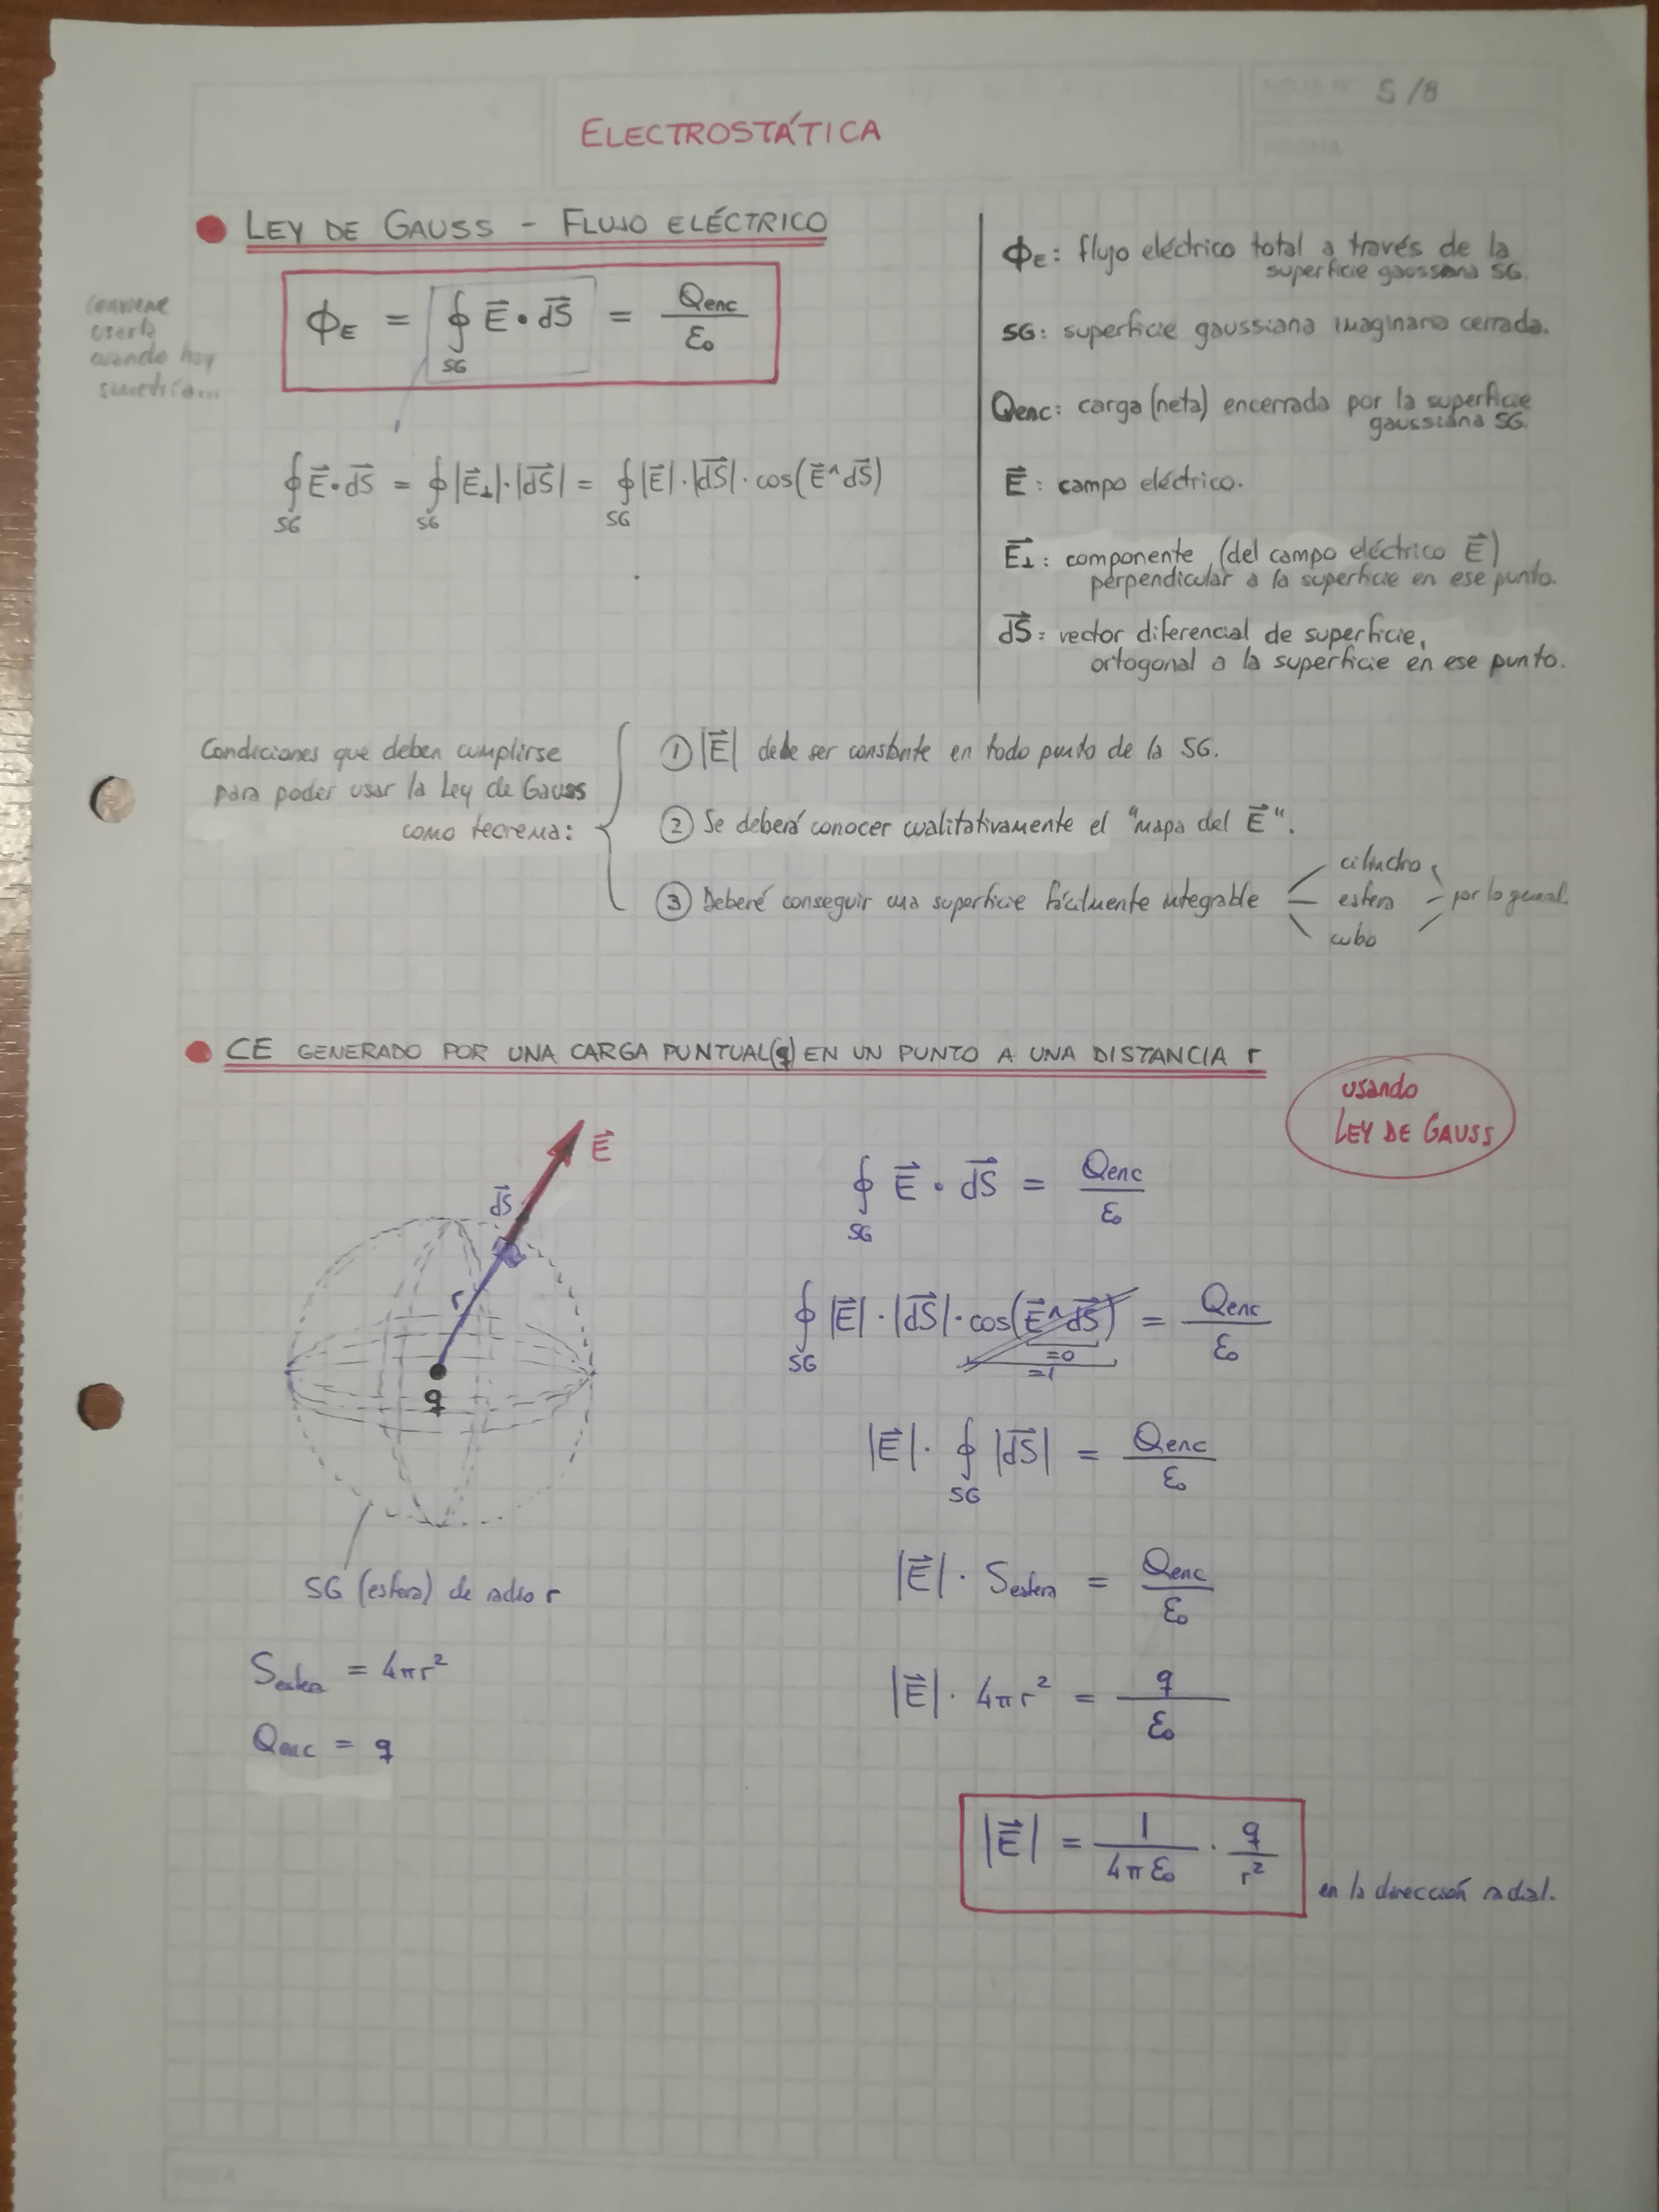 HOJA Nº 5/8
FECHA
ELECTROSTÁTICA
LEY DE GAUSS - FLUJO ELÉCTRICO
Conviene
usarla
cuando hay
simetría...
ΦE = ∮SG E⃗ • dS⃗ = Qenc / ε₀
∮SG E⃗ • dS⃗ = ∮SG |E⃗⊥| · |dS⃗| = ∮SG |E⃗| · |dS⃗| · cos(E⃗ ^ dS⃗)
ΦE: flujo eléctrico total a través de la
superficie gaussiana SG.
SG: superficie gaussiana imaginaria cerrada.
Qenc: carga (neta) encerrada por la superficie
gaussiana SG.
E⃗: campo eléctrico.
E⃗⊥: componente (del campo eléctrico E⃗)
perpendicular a la superficie en ese punto.
dS⃗: vector diferencial de superficie,
ortogonal a la superficie en ese punto.
Condiciones que deben cumplirse
para poder usar la Ley de Gauss
como teorema:
① |E⃗| debe ser constante en todo punto de la SG.
② Se deberá conocer cualitativamente el "mapa del E⃗".
③ Deberé conseguir una superficie fácilmente integrable
cilindro
esfera
cubo
por lo general
CE GENERADO POR UNA CARGA PUNTUAL (q) EN UN PUNTO A UNA DISTANCIA r
usando
LEY DE GAUSS
E⃗
dS⃗
r
q
SG (esfera) de radio r
Sesfera = 4πr²
Qenc = q
∮SG E⃗ • dS⃗ = Qenc / ε₀
∮SG |E⃗| · |dS⃗| · cos(E⃗ ^ dS⃗) = Qenc / ε₀
=0
=1
|E⃗| · ∮SG |dS⃗| = Qenc / ε₀
|E⃗| · Sesfera = Qenc / ε₀
|E⃗| · 4πr² = q / ε₀
|E⃗| = 1 / 4πε₀ · q / r²
en la dirección radial.
NOTA